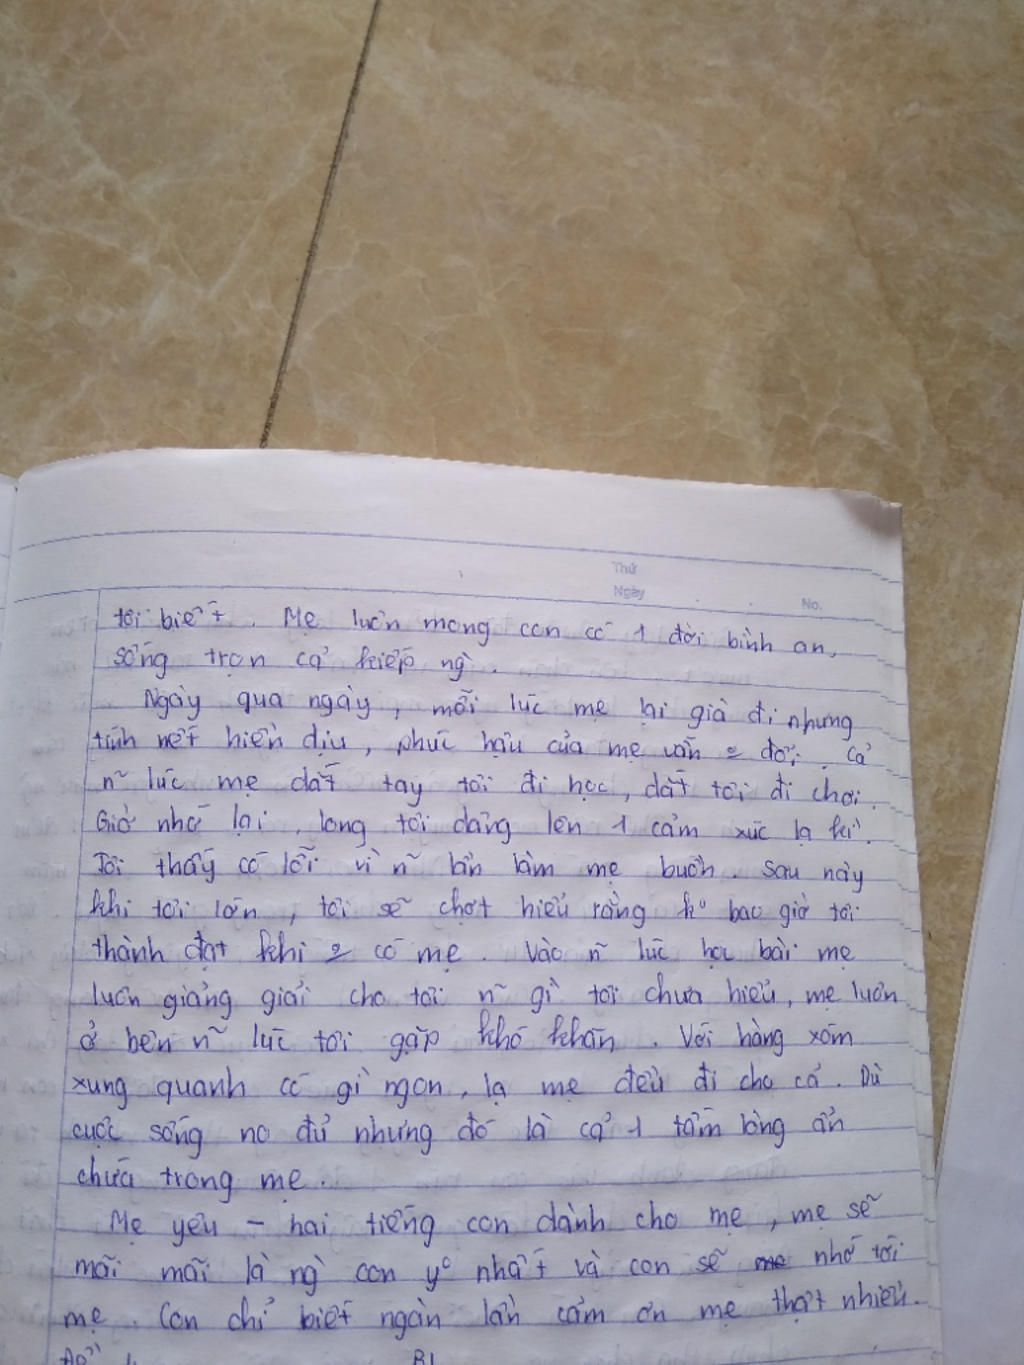 Thứ
Ngày
No.
tôi biết. Mẹ luôn mong con có 1 đời bình an,
sống trọn cả kiếp ng`.
Ngày qua ngày, mỗi lúc mẹ lại già đi nhưng
tính nết hiền dịu, phúc hậu của mẹ vẫn 2 đổi. Cả
n~ lúc mẹ dắt tay tôi đi học, dắt tôi đi chơi.
Giờ nhớ lại, long tôi dâng lên 1 cảm xúc lạ kì.
Tôi thấy có lỗi vì n~ lần làm mẹ buồn. Sau này
khi tôi lớn, tôi sẽ chợt hiểu rằng k° bao giờ tôi
thành đạt khi 2 có mẹ. Vào n~ lúc học bài mẹ
luôn giảng giải cho tôi n~ gì tôi chưa hiểu, mẹ luôn
ở bên n~ lúc tôi gặp khó khăn. Với hàng xóm
xung quanh có gì ngon, lạ mẹ đều đi cho cả. Dù
cuộc sống no đủ nhưng đó là cả 1 tấm lòng ẩn
chứa trong mẹ.
Mẹ yêu - hai tiếng con dành cho mẹ, mẹ sẽ
mãi mãi là ng` con y° nhất và con sẽ nhớ tới
mẹ. Con chỉ biết ngàn lần cảm ơn mẹ thật nhiều.